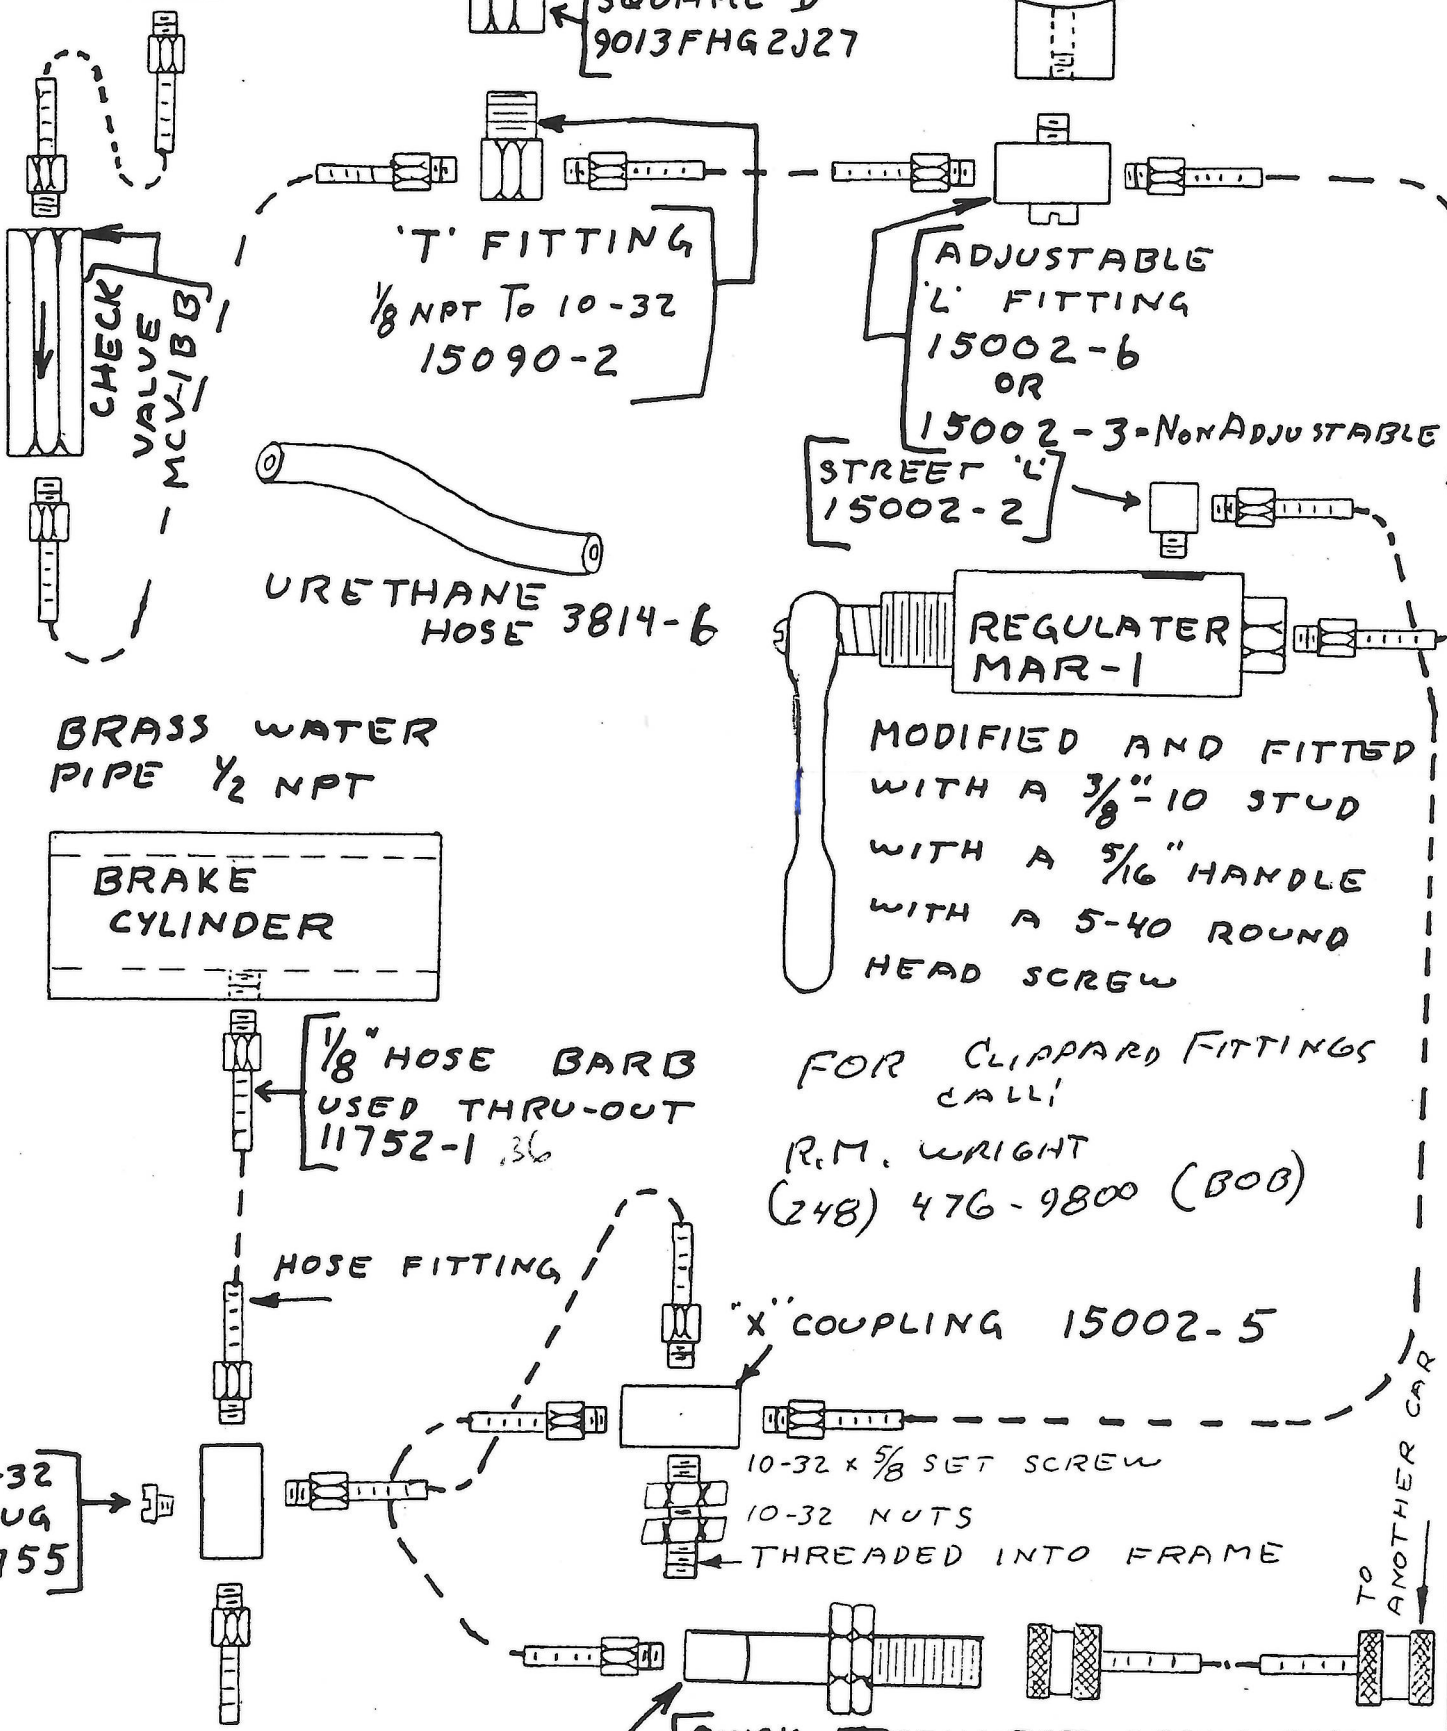 SQUARE D
9013FHG2J27
'T' FITTING
1/8 NPT TO 10-32
15090-2
ADJUSTABLE
'L' FITTING
15002-6
OR
15002-3-NONADJUSTABLE
CHECK
VALVE
MCV-1BB
STREET 'L'
15002-2
URETHANE
HOSE 3814-6
REGULATER
MAR-1
BRASS WATER
PIPE 1/2 NPT
MODIFIED AND FITTED
WITH A 3/8"-10 STUD
WITH A 5/16" HANDLE
WITH A 5-40 ROUND
HEAD SCREW
BRAKE
CYLINDER
1/8" HOSE BARB
USED THRU-OUT
11752-1 .36
FOR CLIPPARD FITTINGS
CALL:
R.M. WRIGHT
(248) 476-9800 (BOB)
HOSE FITTING
"X" COUPLING 15002-5
10-32 x 5/8 SET SCREW
10-32 NUTS
THREADED INTO FRAME
-32
UG
755
TO
ANOTHER CAR